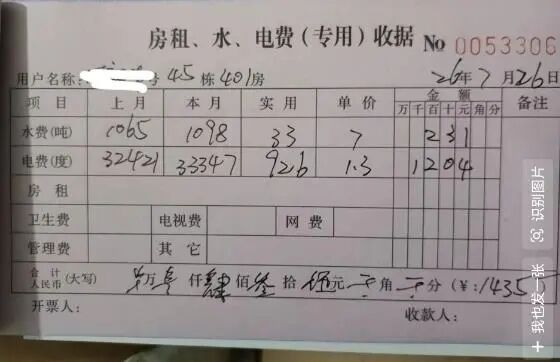 房租、水、电费（专用）收据 No 0053306
用户名称: 号45栋401房 26年7月26日
项目 上月 本月 实用 单价 金额 备注
万千百十元角分
水费(吨) 1065 1098 33 7 231
电费(度) 32421 33347 926 1.3 1204
房租
卫生费 电视费 网费
管理费 其它
合计人民币(大写) 万 仟肆佰叁拾伍元 角 分 (¥:1435
开票人: 收款人:
识别图片
+ 我也发一张